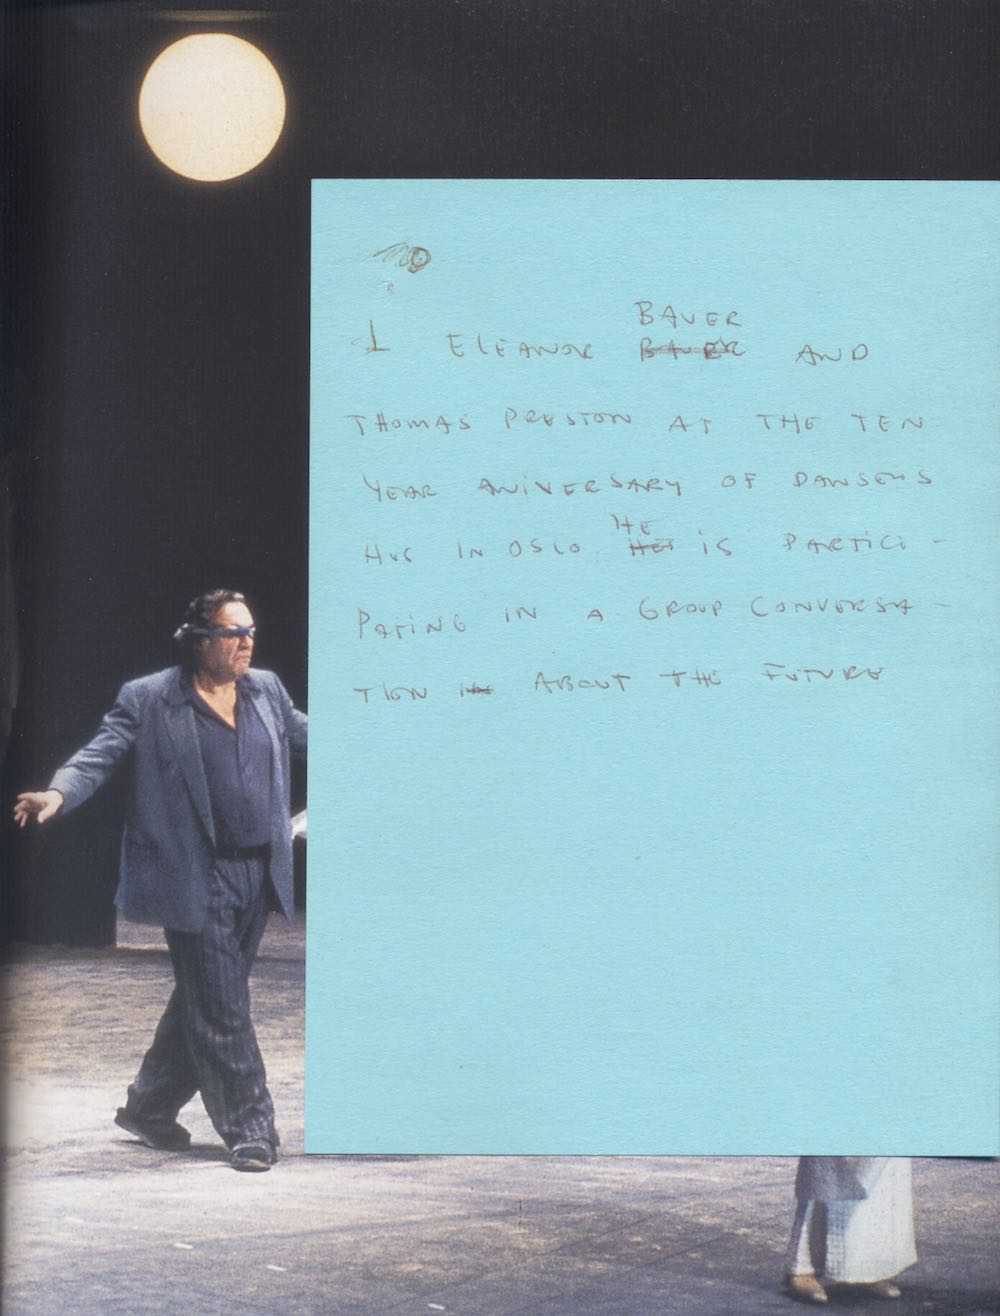 BAUER
I ELEANOR BAUER AND
THOMAS PRESTON AT THE TEN
YEAR ANIVERSARY OF DANSENS
HUS IN OSLO. HE
IS PARTICI-
PATING IN A GROUP CONVERSA-
TION ABOUT THE FUTURE